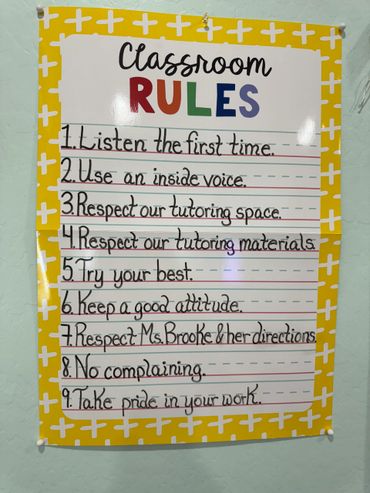 Classroom
RULES
1. Listen the first time.
2. Use an inside voice.
3. Respect our tutoring space.
4. Respect our tutoring materials.
5. Try your best.
6. Keep a good attitude.
7. Respect Ms. Brooke & her directions.
8. No complaining.
9. Take pride in your work.